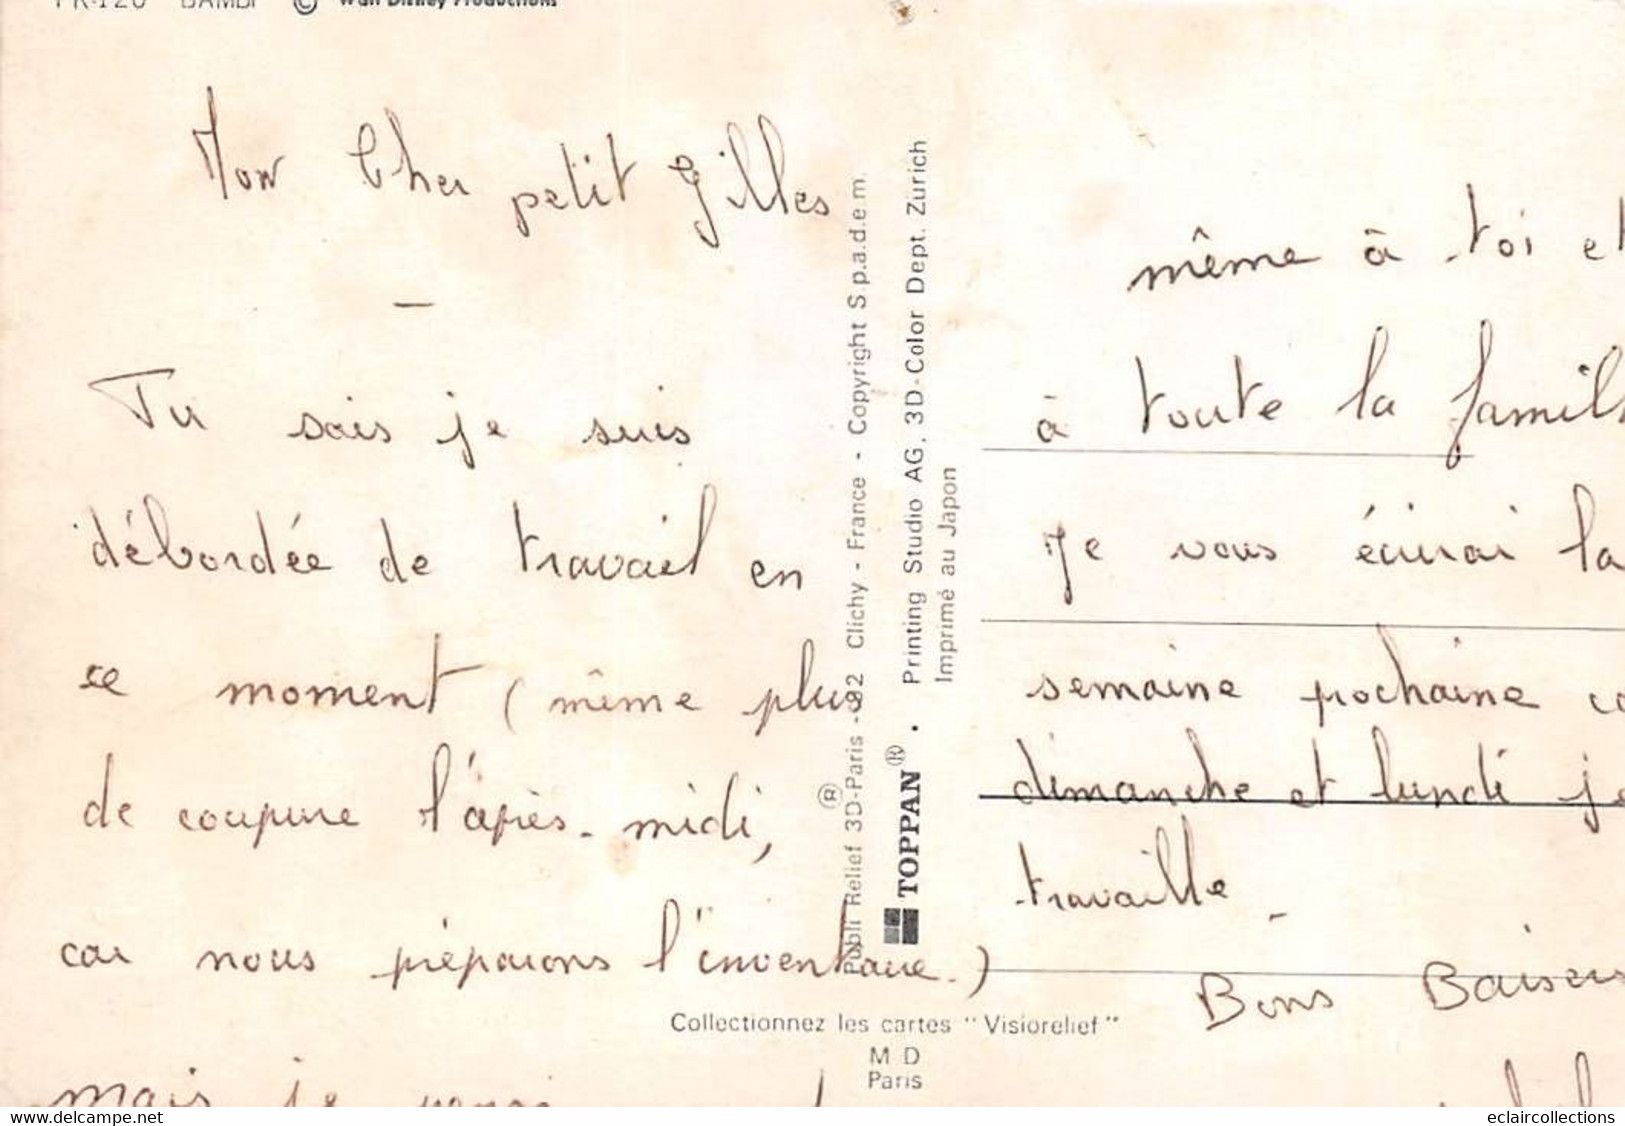 PR.120 BAMBI © Walt Disney Productions
Mon Cher petit Gilles
—
Tu sais je suis
débordée de travail en
ce moment (même plus
de coupure l'après-midi,
car nous préparons l'inventaire.)
mais je
même à toi et
à toute la famill
Je vous écrirai la
semaine prochaine ca
dimanche et lundi je
travaille.
Bons Baisers
Publi Relief 3D-Paris - 92 Clichy - France - Copyright S.p.a.d.e.m.
®
TOPPAN® . Printing Studio AG. 3D-Color Dept. Zürich
Imprimé au Japon
Collectionnez les cartes "Visiorelief"
M D
Paris
www.delcampe.net
eclaircollections